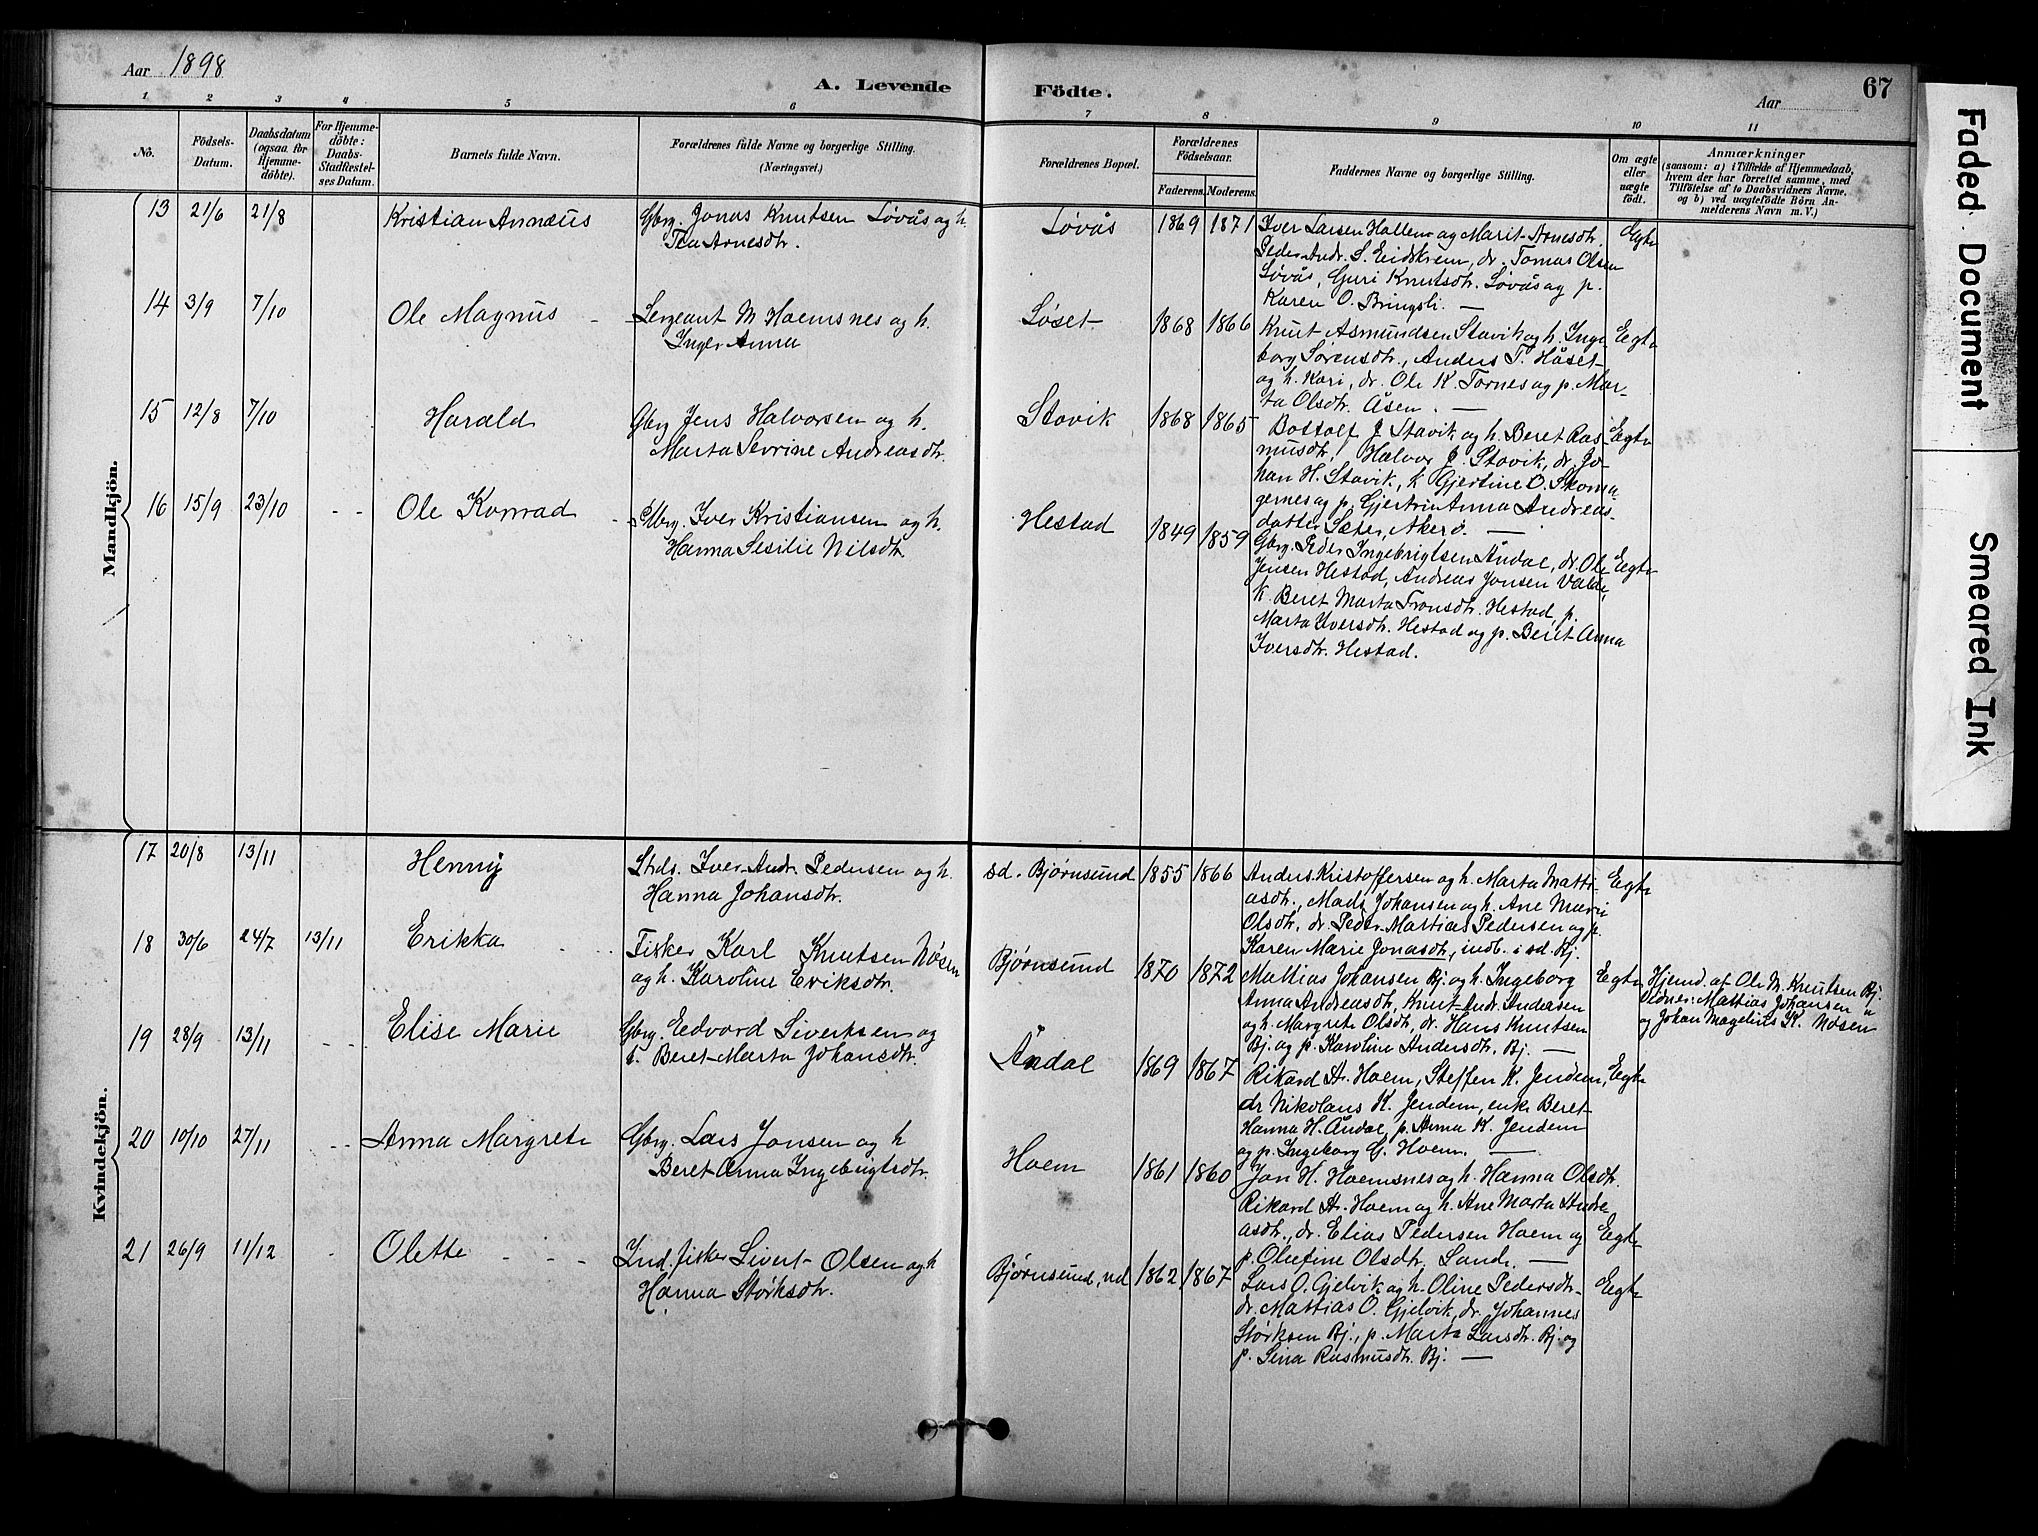 Aar 1898
A. Levende Födte.
Aar
67
1 2 3 4 5 6 7 8 9 10 11
No.
Födsels-Datum.
Daabsdatum (ogsaa for Hjemme-döbte).
For Hjemme-döbte: Daabs-Stadfæstel-ses Datum.
Barnets fulde Navn.
Forældrenes fulde Navne og borgerlige Stilling. (Næringsvei.)
Forældrenes Bopæl.
Forældrenes Födselsaar.
Faderens. Moderens.
Faddernes Navne og borgerlige Stilling.
Om ægte eller uægte födt.
Anmærkninger
(saasom: a) i Tilfælde af Hjemmedaab,
hvem der har forrettet samme, med
Tilföielse af to Daabsvidners Navne,
og b) ved uægtefödte Börn An-
melderens Navn m. V.)
Mandkjön.
13 21/6 21/8 Kristian Annæus
Gbrg. Jonas Knutsen Løvås og h.
Arnesdtr.
Løvås 1869 1871
Iver Larsen Hollem og Marit Arnesdtr.
Peder Andr. S. Eidskrem, dr. Tomas Olsen
Løvås, Guri Knutsdtr. Løvås og p.
Karen O. Bringsli. —
Egte
14 3/9 7/10 Ole Magnus
Sergeant M Hoemsnes og h.
Inger Anna
Løset 1868 1866
Knut Asmundsen Stavik og h. Inge-
borg Sørensdtr., Anders T. Håset
og h. Kari, dr. Ole K. Tornes og p. Mar-
ta Olsdtr. Åsen. —
Egte
15 12/8 7/10 Harald
Gbrg Jens Halvorsen og h.
Marta Sevrine Andreasdtr.
Stavik 1868 1865
Bottolf J Stavik og h. Beret Ras-
musdtr, Halvor J. Stavik, dr. Jo-
han H. Stavik, k Gjertine O. Skoma-
gernes og p. Gjertrin Anna Andreas-
datter Sæter, Akerø. —
Egte
16 15/9 23/10 Ole Konrad
Gbrg. Iver Kristiansen og h.
Hanna Sesilie Nilsdtr.
Hestad 1849 1859
Gbrg. Peder Ingebrigtsen Åndal, dr. Ole
Jensen Hestad, Andreas Jonsen Valde,
k. Beret Marta Tronsdtr. Hestad, p.
Marta Iversdtr. Hestad og p. Beret Anna
Iversdtr. Hestad.
Egte
Kvindekjön.
17 20/8 13/11 Henny
Strds. Iver Andr. Pedersen og h.
Hanna Johansdtr.
sd. Bjørnsund 1855 1866
Anders Kristoffersen og h. Marta Matti-
asdtr., Mads Johansen og h. Ane Marie
Olsdtr, dr. Peder Mattias Pedersen og p.
Karen Marie Jonasdtr, indb. i sd. Bj.
Egte
18 30/6 24/7 13/11 Erikka
Fisker Karl Knutsen Nøsen
og h. Karoline Eriksdtr.
Bjørnsund 1870 1872
Mattias Johansen Bj. og h. Ingeborg
Anna Andreasdtr, Knut Andr. Andersen
og h. Margrete Olsdtr, dr. Hans Knutsen
Bj. og p. Karoline Andersdtr. Bj. —
Egte
Hjemd. af Ole M. Knutsen Bj.
Vidner: Mattias Johansen
og Johan Magelius K. Nøsen
19 28/9 13/11 Elise Marie
Gbrg. Edvard Sivertsen og
h. Beret Marta Johansdtr.
Åndal 1869 1867
Rikard A. Hoem, Steffen K. Jendem,
dr Nikolaus K. Jendem, enke Beret
Hanna H. Åndal, p. Anna K. Jendem
og p. Ingeborg C. Hoem. —
Egte
20 10/10 27/11 Anna Margrete
Gbrg. Lars Jonsen og h
Beret Anna Ingebrigtsdtr.
Hoem 1861 1860
Jon H. Hoemsnes og h. Hanna Olsdtr.
Rikard A. Hoem og h. Ane Marta Andre-
asdtr., dr. Elias Pedersen Hoem og
p. Olufine Olsdtr, Lande. —
Egte
21 26/9 11/12 Olette
Ind. fisker Sivert Olsen og h
Hanna Størksdtr.
Bjørnsund, nd 1862 1867
Lars O. Gjelvik og h. Oline Pedersdtr.
dr. Mattias O. Gjelvik, dr. Johannes
Størksen Bj., p. Marta Larsdtr. Bj. og
p. Sina Rasmusdtr. Bj. —
Egte
Faded Document
Smeared Ink